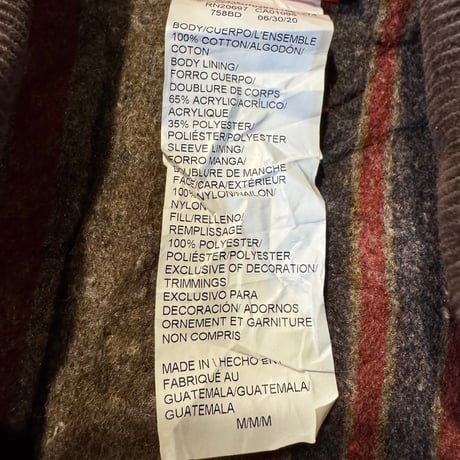 RN20697 CA01095
758BD 06/30/20
BODY/CUERPO/L'ENSEMBLE
100% COTTON/ALGODÓN/
COTON
BODY LINING/
FORRO CUERPO/
DOUBLURE DE CORPS
65% ACRYLIC/ACRÍLICO/
ACRYLIQUE
35% POLYESTER/
POLIÉSTER/POLYESTER
SLEEVE LINING/
FORRO MANGA/
DOUBLURE DE MANCHE
FACE/CARA/EXTÉRIEUR
100% NYLON/NAILON/
NYLON
FILL/RELLENO/
REMPLISSAGE
100% POLYESTER/
POLIÉSTER/POLYESTER
EXCLUSIVE OF DECORATION/
TRIMMINGS
EXCLUSIVO PARA
DECORACIÓN/ ADORNOS
ORNEMENT ET GARNITURE
NON COMPRIS
MADE IN \ HECHO EN
FABRIQUÉ AU
GUATEMALA/GUATEMALA/
GUATEMALA
M/M/M